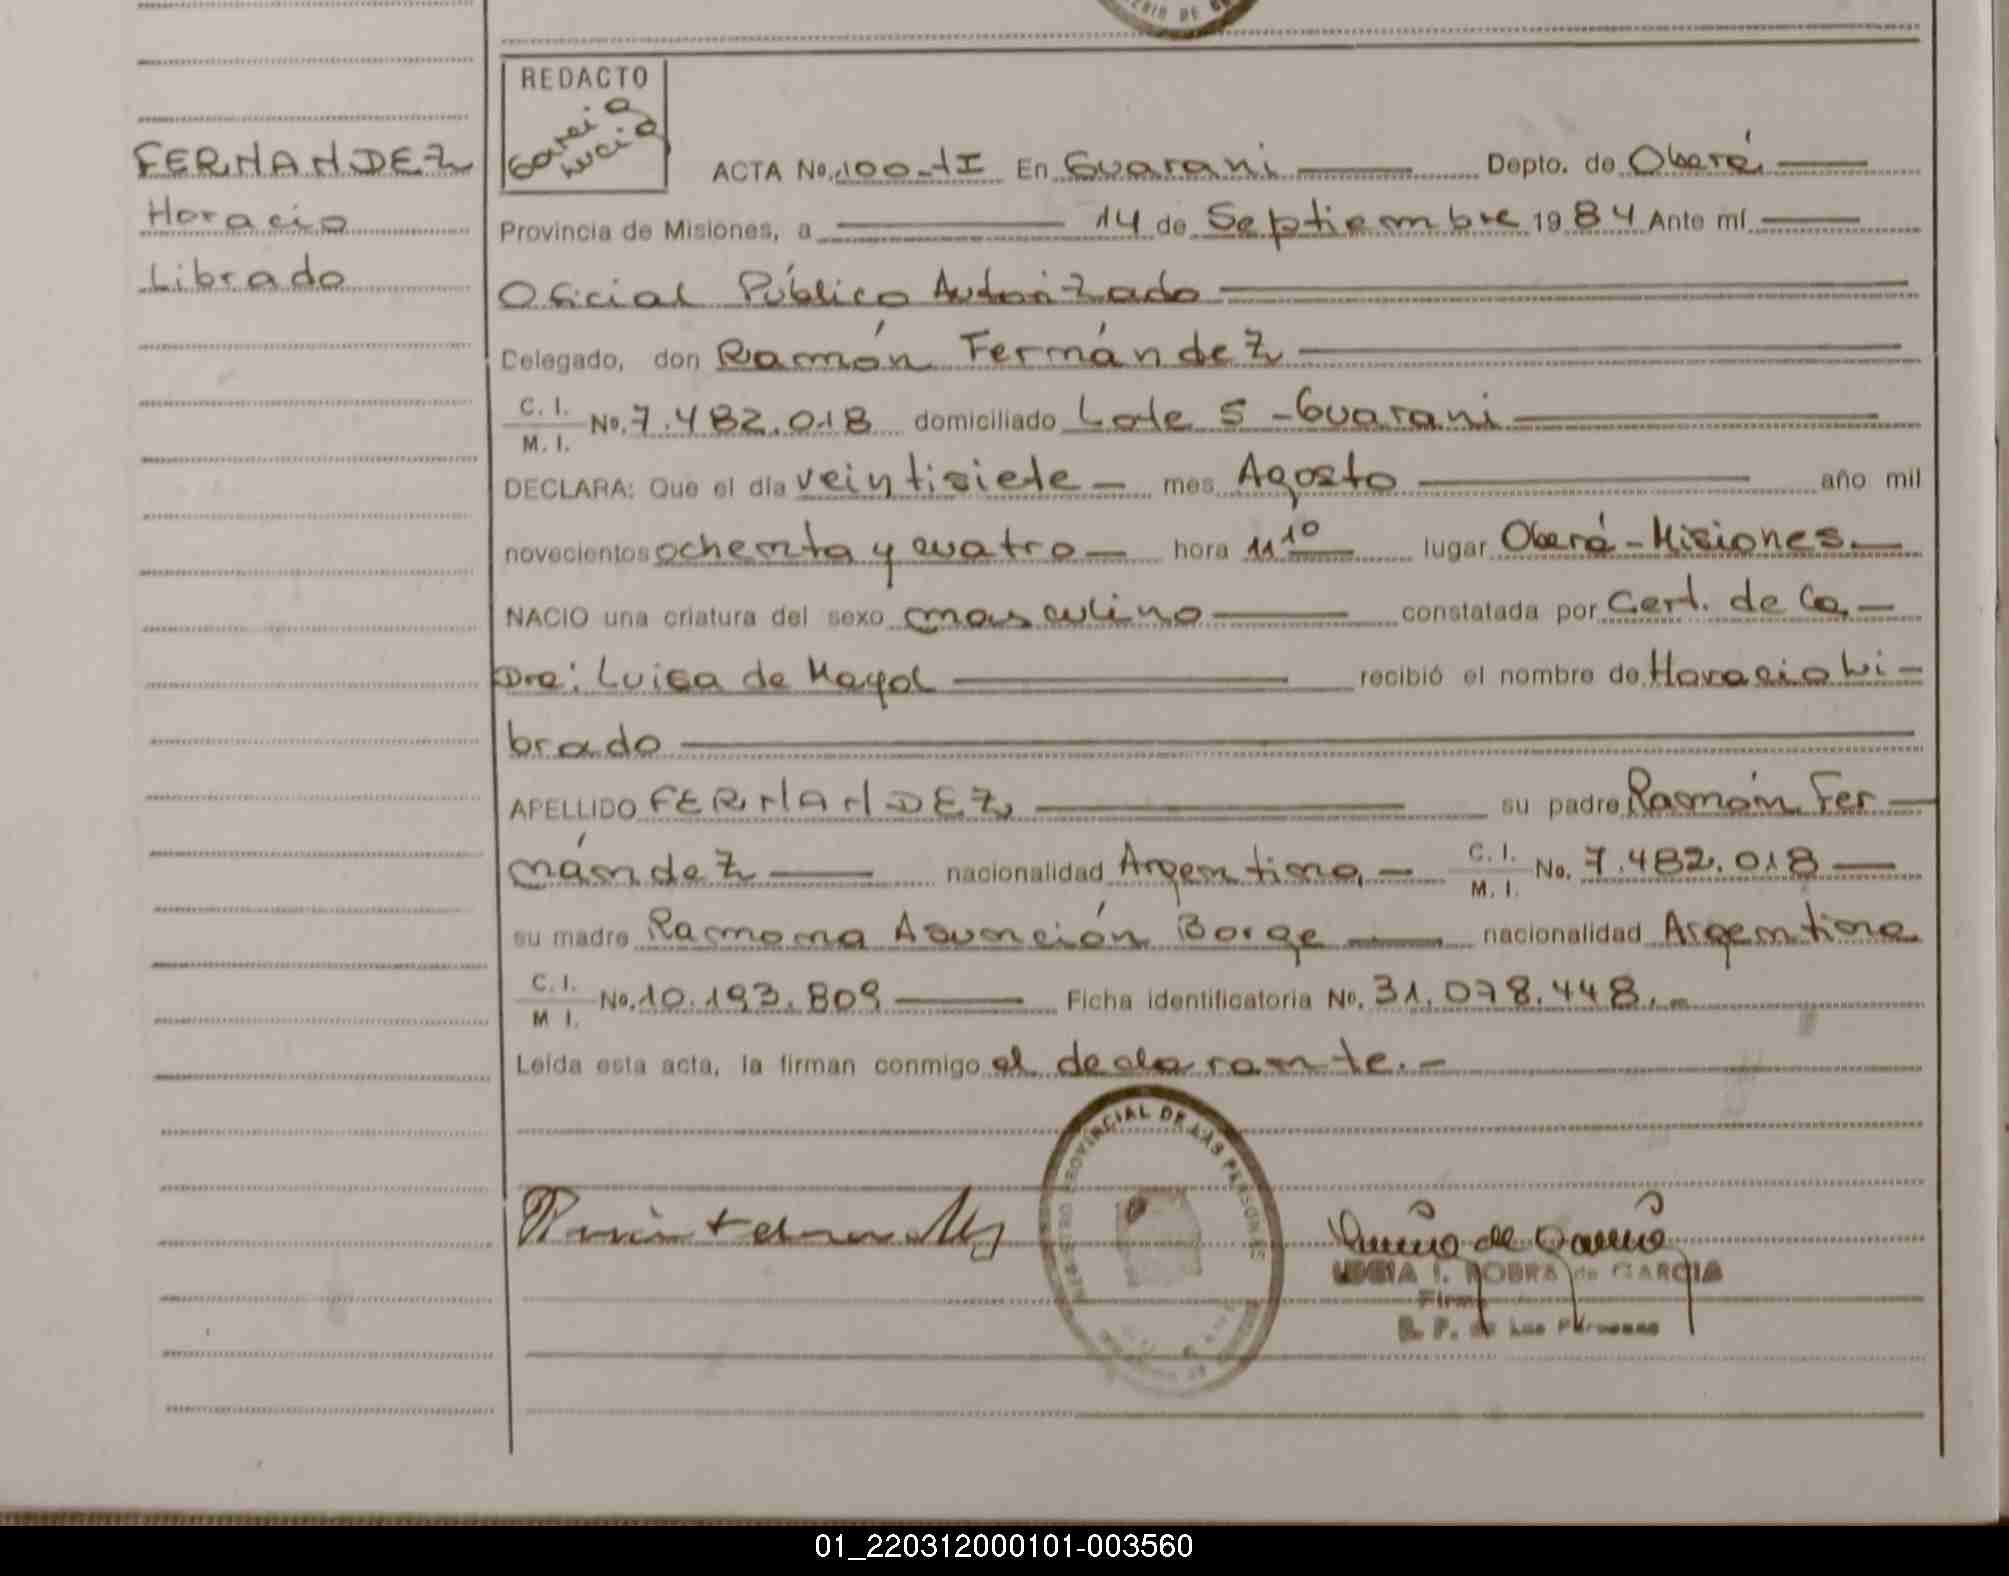 FERNANDEZ
Horacio
Librado
REDACTO
Garcia
Lucia
ACTA No. 100-tI En Guarani Depto. de Oberá
Provincia de Misiones, a 14 de Septiembre 1984 Ante mí
Oficial Público Autorizado
Delegado, don Ramón Fernández
C. I. / M. I. No. 7.482.018 domiciliado Lote 5 - Guarani
DECLARA: Que el día veintisiete - mes Agosto año mil
novecientos ochenta y cuatro - hora 11 10 lugar Oberá - Misiones -
NACIO una criatura del sexo masculino constatada por Cert. de la -
Dra: Luisa de Mayol recibió el nombre de Horacio Li -
brado
APELLIDO FERNANDEZ su padre Ramón Fer -
nández nacionalidad Argentina - C. I. / M. I. No. 7.482.018 -
su madre Ramona Asunción Borge nacionalidad Argentina
C. I. / M I. No. 10.193.809 Ficha identificatoria No. 31.078.448. -
Leída esta acta, la firman conmigo el declarante. -
REGISTRO PROVINCIAL DE LAS PERSONAS
LUCIA I. ROBRA de GARCIA
Firma
R. P. de Las Personas
01_220312000101-003560